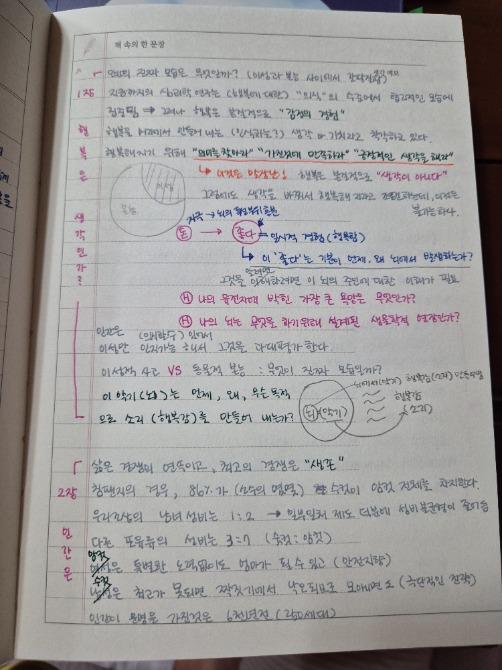 책 속의 한 문장
우리의 진짜 모습은 무엇인가? (이성과 본능 사이에서 갈팡질팡)
1장 지금까지의 심리학 연구는 (행복에 대한) "의식"의 수준에서 합리적인 모습에
집중됨 → 그러나 행복은 본질적으로 "감정의 경험"
행복을 머리에서 만들어 내는 (인식하는?) 생각 or 가치라고 착각하고 있다.
행복해지기 위해 "의미를 찾아라" "가진것에 만족하라" "긍정적인 생각을 해라"
행복은 본질적으로 "생각이 아니다"
그럼에도 생각을 바꿔서 행복해지라고
불가능하다.
본능
이성
자극 → 뇌의
돈 → 좋다 = 일시적 경험 (행복감)
이 '좋다'는 기분이 언제, 왜 뇌에서 발생하는가?
그것을 이해하려면 이 뇌의 주인에 대한 이해가 필요
H 나의 유전자에 박힌 가장 큰 욕망은 무엇인가?
H 나의 뇌는 무엇을 하기위해 설계된 생물학적 연장인가?
행복은 생각인가?
인간은 (의식할수) 있어서
이성만 인지가능해서 그것을 과대평가한다.
이성적 사고 VS 동물적 본능 : 무엇이 진짜 모습인가?
이 악기(뇌)는 언제, 왜, 무슨 목적
으로 소리 (행복감)를 만들어 내는가?
뇌(악기)
행복감
(소리)
삶은 경쟁의 연속이고, 최고의 경쟁은 "생존"
2장 침팬지의 경우, 86%가 수컷이 암컷 전체를 차지한다.
우리조상의 남녀 성비는 1:2 → 일부일처 제도 덕분에 성비불균형이 줄어듬
다른 포유류의 성비는 3:7 (수컷:암컷)
인간은
암컷
여성은 특별한 노력없이도 엄마가 될 수 있고 (안전지향)
수컷
남성은 최고가 못되면 짝짓기에서 낙오되므로 모아니면 도 (극단적인 전략)
인간이 문명을 가진것은 6천년전 (250세대)